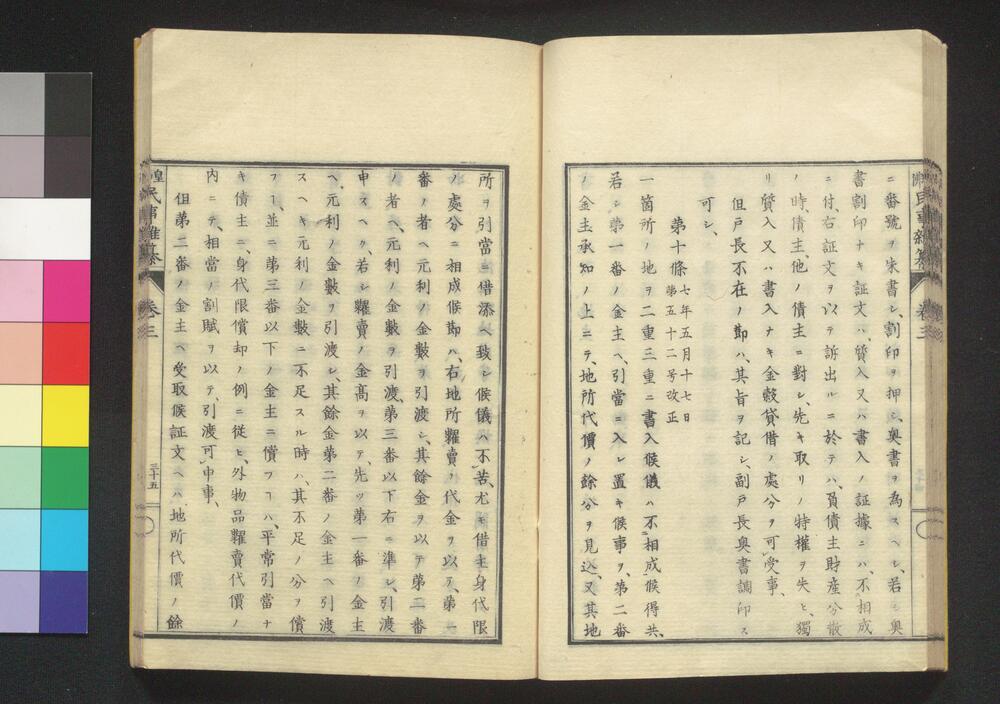 ニ番號ヲ朱書シ、割印ヲ押シ、奥書ヲ為スヘシ、若シ奥
書割印ナキ証文ハ、質入又ハ書入ノ証據ニハ、不相成
ニ付、右証文ヲ以テ訴出ルニ於テハ、負債主財産分散
ノ時、債主、他ノ債主ニ對シ、先キ取リノ特權ヲ失ヒ、獨
リ質入又ハ書入ナキ金穀貸借ノ處分ヲ可受事、
但戸長不在ノ節ハ、其旨ヲ記シ、副戸長奥書調印ス
可シ、
第十條 七年五月十七日
第五十二号改正
一箇所ノ地ヲ二重三重ニ書入候儀ハ不相成候得共、
若シ第一番ノ金主ヘ、引當ニ入レ置キ候事ヲ、第二番
ノ金主承知ノ上ニテ、地所代價ノ餘分ヲ見込、又其地
所ヲ引當ニ借添ヘ致シ候儀ハ不苦、尤モ借主身代限
ノ處分ニ相成候節ハ、右地所糶賣ノ代金ヲ以テ、第一
番ノ者ヘ元利ノ金數ヲ引渡シ、其餘金ヲ以テ第二番
ノ者ヘ、元利ノ金數ヲ引渡、第三番以下右ニ準シ、引渡
申スヘク、若シ糶賣ノ金高ヲ以テ、先ッ第一番ノ金主
ヘ、元利ノ金數ヲ引渡シ、其餘金第二番ノ金主ヘ引渡
スヘキ元利ノ金數ニ不足スル時ハ、其不足ノ分ヲ償
フヿ、並ニ第三番以下ノ金主ニ償フヿハ、平常引當ナ
キ債主ニ、身代限償却ノ例ニ從ヒ、外物品糶賣代價ノ
内ニテ、相當ノ割賦ヲ以テ、引渡可申事、
但第二番ノ金主ヘ受取候証文ヘハ、地所代價ノ餘
民事雜纂 卷三
三十五